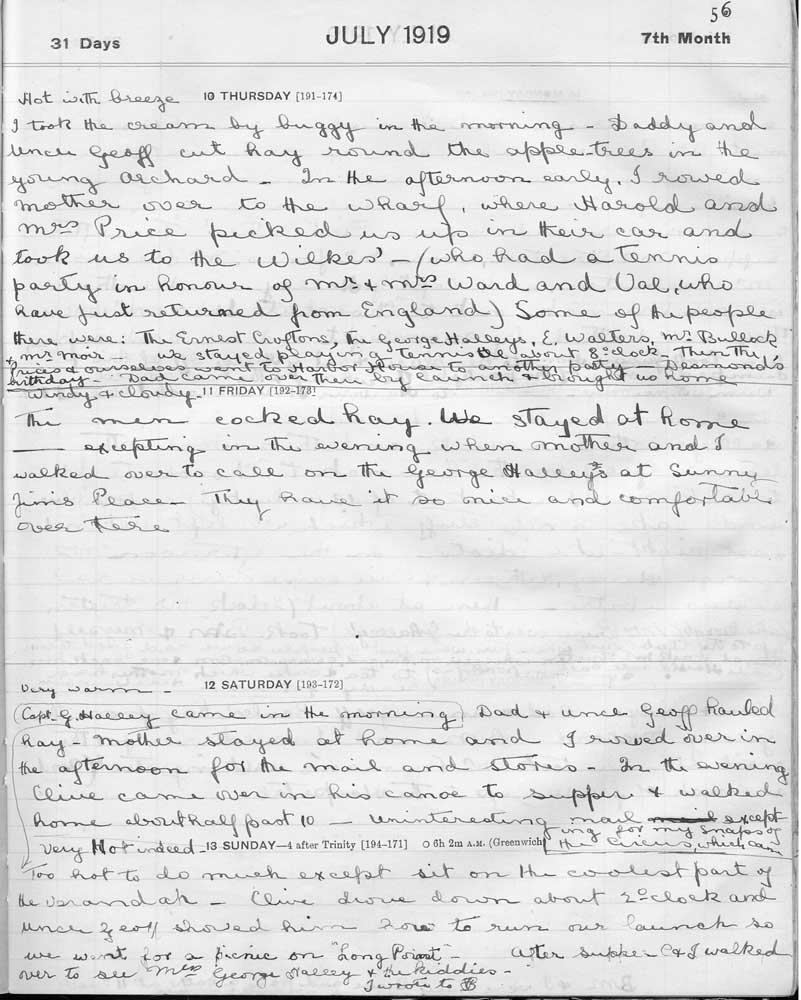 56
31 Days JULY 1919 7th Month
Hot with breeze 10 THURSDAY [191-174]
I took the cream by buggy in the morning - Daddy and
Uncle Geoff cut hay round the apple-trees in the
young orchard - In the afternoon early, I rowed
mother over to the wharf, where Harold and
Mrs Price picked us up in their car and
took us to the Wilkes' - (who had a tennis
party in honour of Mr. & Mrs Ward and Val, who
have just returned from England) Some of the people
there were: The Ernest Croftons, the George Halleys, E. Walters, Mr Bullock
& Mr Moir - We stayed playing tennis till about 8 o'clock - Then the
Prices & ourselves went to Harbor House to another party - Desmond's
birthday - Dad came over then by launch & brought us home
Windy & cloudy 11 FRIDAY [192-173]
The men cocked hay. We stayed at home
— excepting in the evening when mother and I
walked over to call on the George Halley's at Sunny
Jim's Place - They have it so nice and comfortable
over there
Very warm - 12 SATURDAY [193-172]
(Capt. G. Halley came in the morning) Dad & Uncle Geoff hauled
hay - Mother stayed at home and I rowed over in
the afternoon for the mail and stores - In the evening
Clive came over in his canoe to supper & walked
home about half past 10 - Uninteresting mail except
ing for my snaps of
the Circus, which came
Very Hot indeed - 13 SUNDAY—4 after Trinity [194-171] O 6h 2m A.M. (Greenwich)
Too hot to do much except sit on the coolest part of
the verandah - Clive drove down about 2 o'clock and
Uncle Geoff showed him how to run our launch so
we went for a picnic on "Long Point" - After supper C & I walked
over to see Mrs George Halley & the kiddies -
I wrote to B